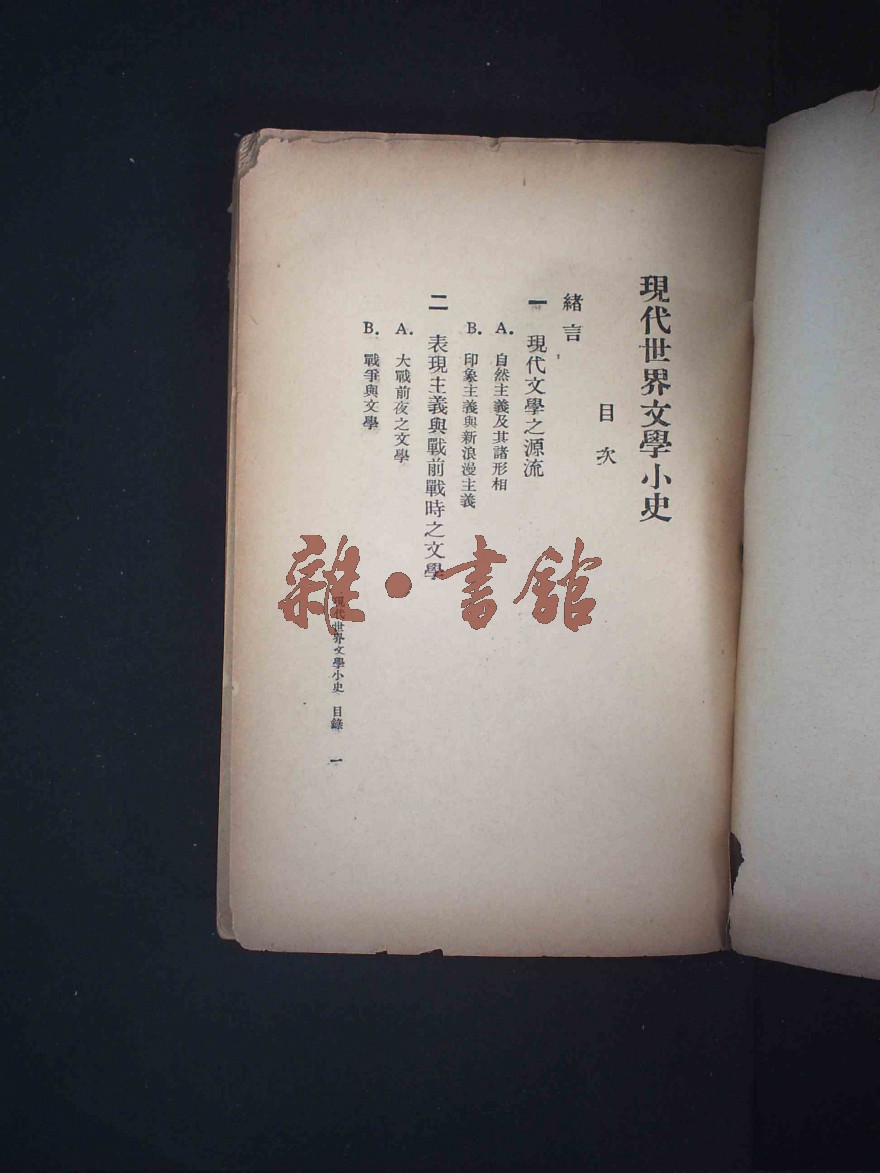 現代世界文學小史
目次
緒言
一 現代文學之源流
A. 自然主義及其諸形相
B. 印象主義與新浪漫主義
二 表現主義與戰前戰時之文學
A. 大戰前夜之文學
B. 戰爭與文學
現代世界文學小史 目錄 一
雜·書館